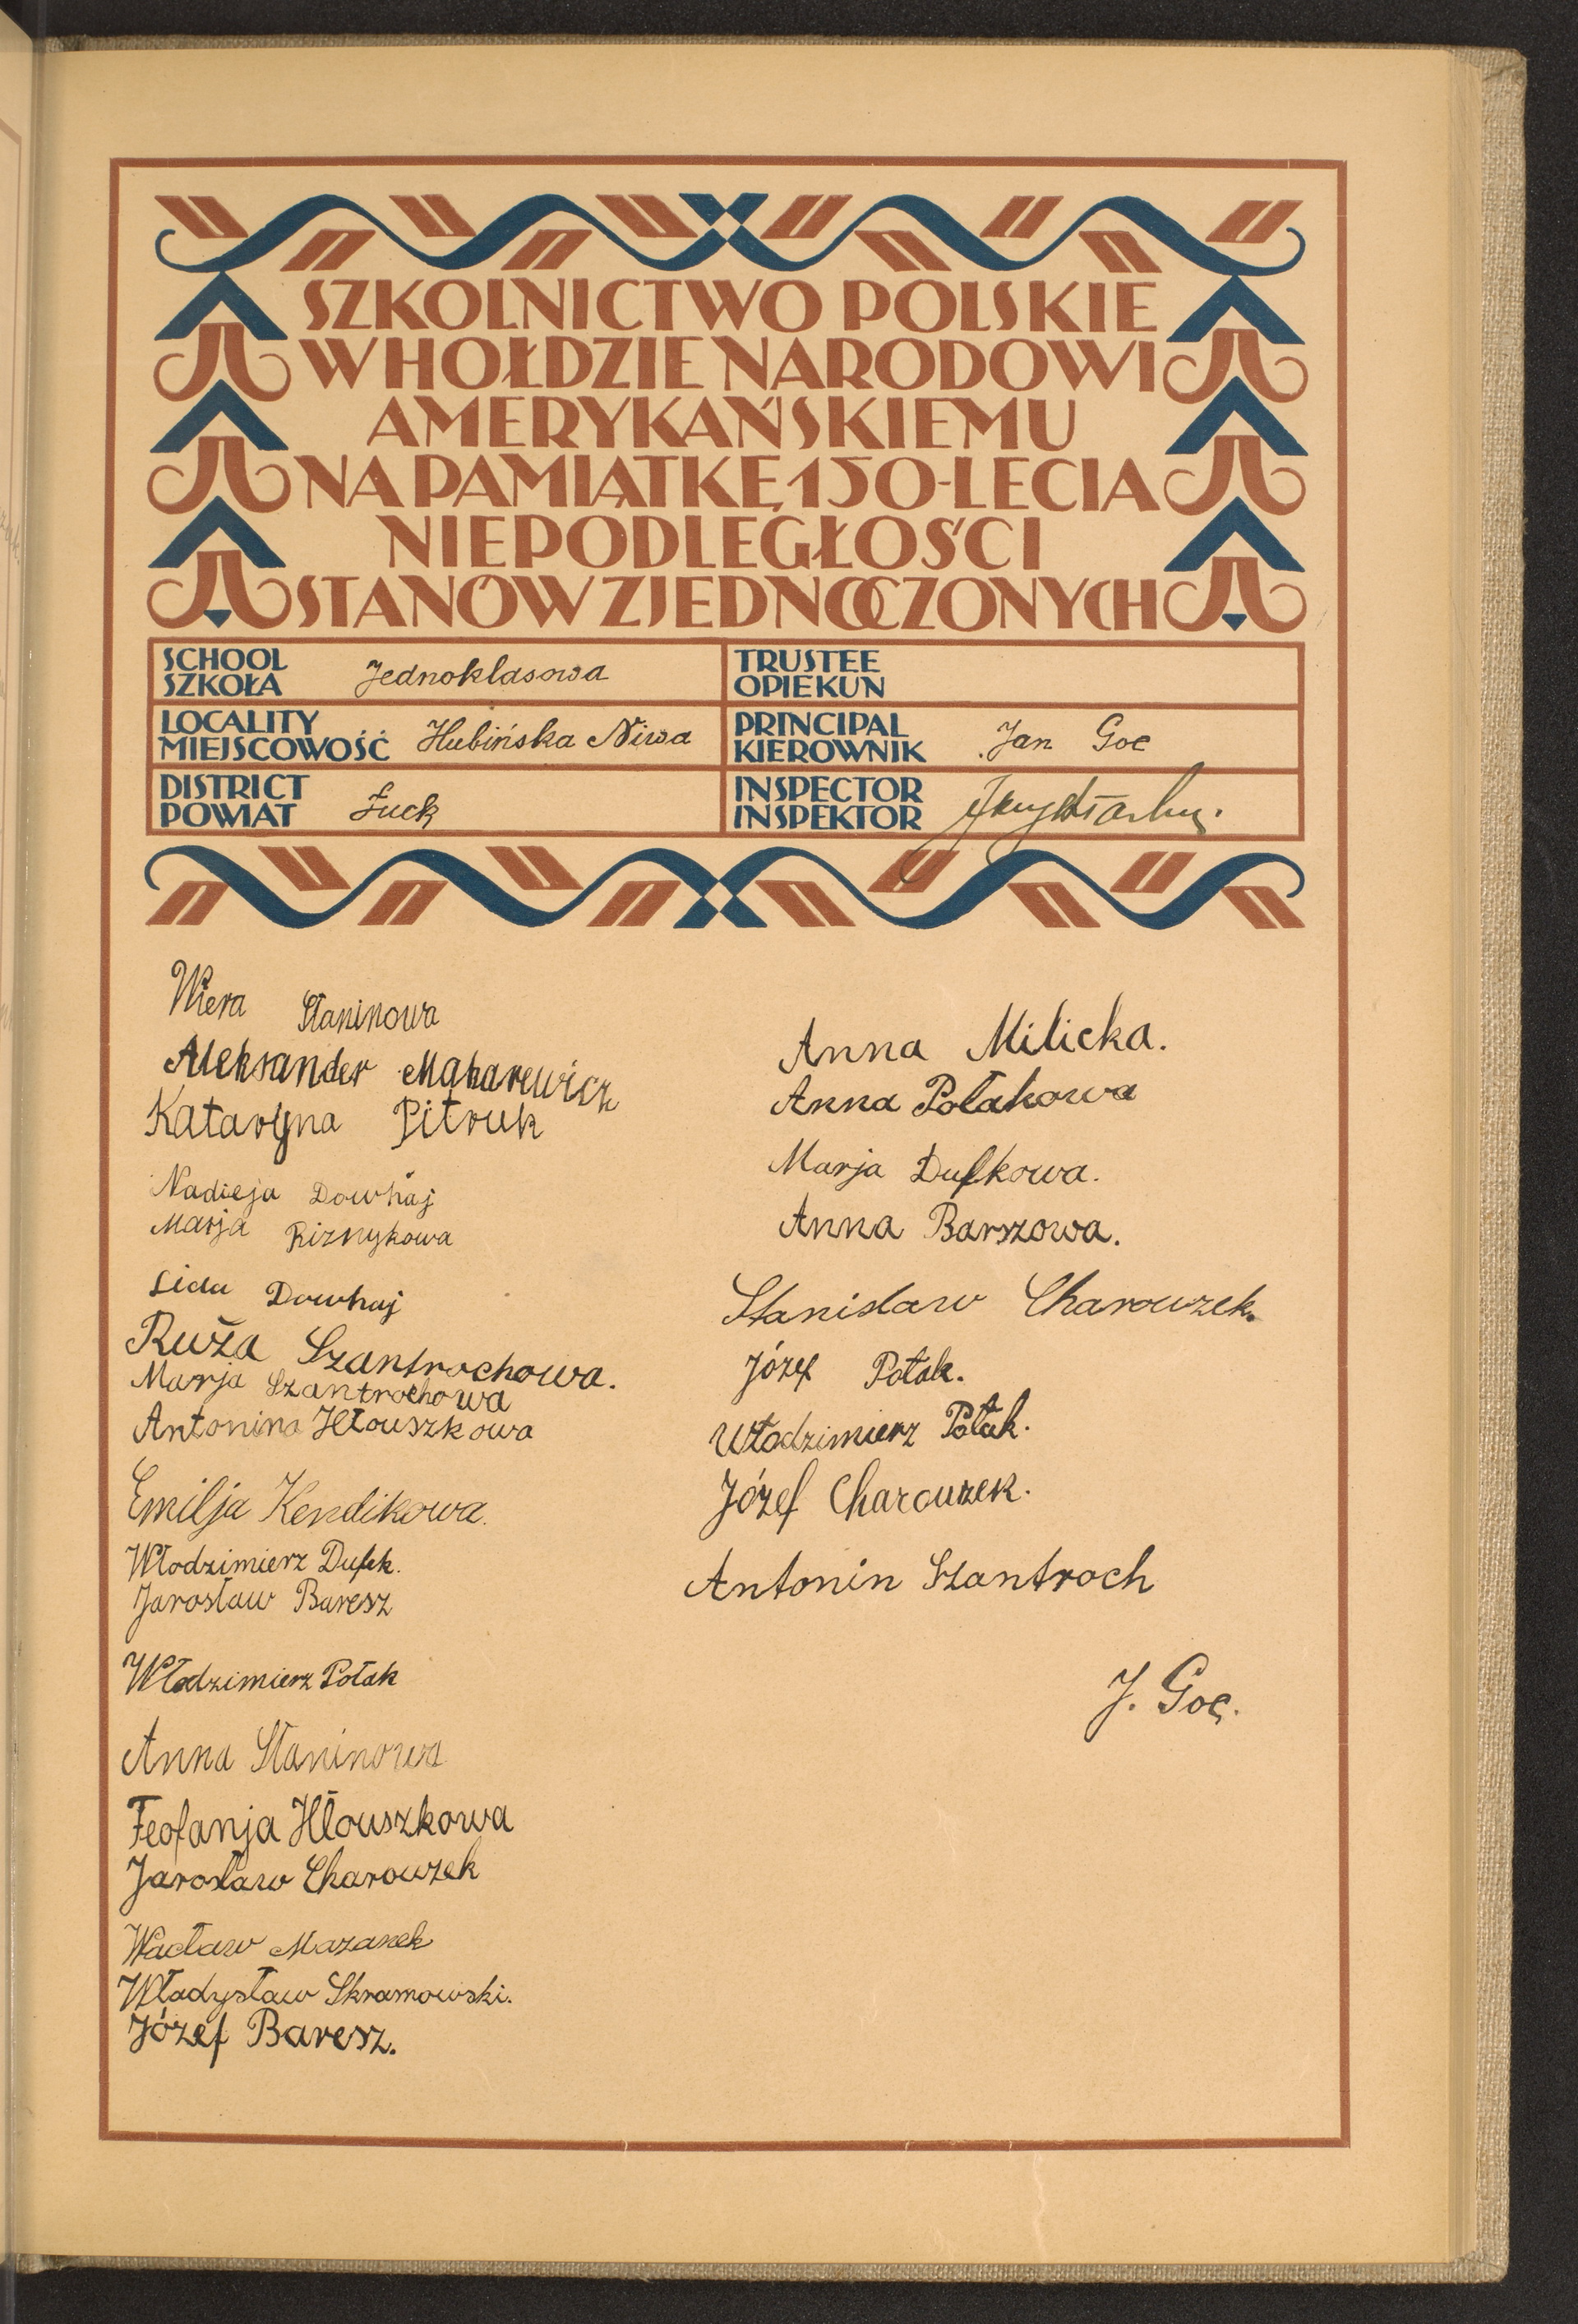 SZKOLNICTWO POLSKIE
W HOŁDZIE NARODOWI
AMERYKAŃSKIEMU
NA PAMIĄTKĘ 150-LECIA
NIEPODLEGŁOŚCI
STANÓW ZJEDNOCZONYCH
SCHOOL
SZKOŁA Jednoklasowa
TRUSTEE
OPIEKUN
LOCALITY
MIEJSCOWOŚĆ Hubińska Niwa
PRINCIPAL
KIEROWNIK Jan Goc
DISTRICT
POWIAT Łuck
INSPECTOR
INSPEKTOR
Wiera Staninowa
Aleksander Makarewicz
Kataryna Pitruk
Nadieja Dowhaj
Marja Riznykowa
Lida Dowhaj
Ruža Szantrochowa.
Marja Szantrochowa
Antonina Hłouszkowa
Emilja Kendikowa.
Włodzimierz Dufek.
Jarosław Baresz
Włodzimierz Połak
Anna Staninowa
Feofanja Hłouszkowa
Jarosław Charouzek
Wacław Mazanek
Władysław Skramowski.
Józef Baresz.
Anna Milicka.
Anna Połakowa
Marja Dufkowa.
Anna Barszowa.
Stanisław Charouzek.
Józef Połak.
Włodzimierz Połak.
Józef Charouzek.
Antonin Szantroch
J. Goc.